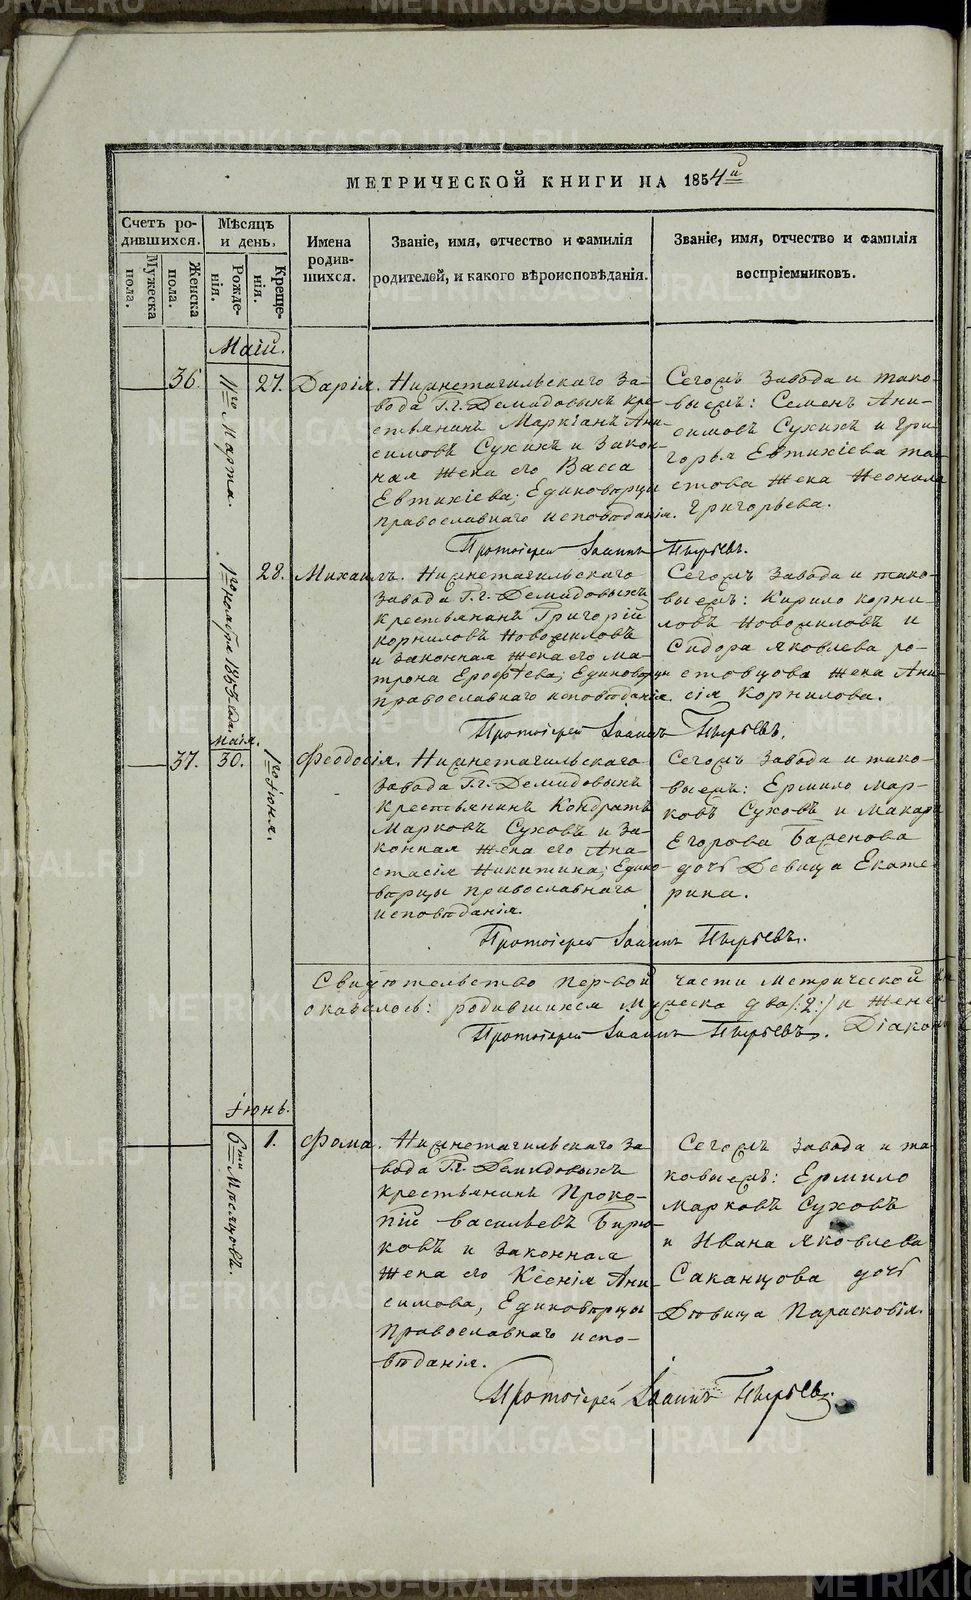 МЕТРИЧЕСКОЙ КНИГИ НА 1854й
Счетъ ро-
дившихся.
Мужеска
пола.
Женска
пола.
Мѣсяцъ
и день.
Рожде-
нія.
Креще-
нія.
Имена
родив-
шихся.
Званіе, имя, отчество и фамилія
родителей, и какого вѣроисповѣданія.
Званіе, имя, отчество и фамилія
воспріемниковъ.
Маій.
36.
11го Марта.
27.
Дарія.
Нижнетагильскаго За-
вода Г.г. Демидовыхъ кре-
стьянинъ Маркіанъ Ани-
симовъ Сухихъ и Закон-
ная жена его Васса
Евтихіева; Единоверцы
православнаго исповѣданія.
Сегожъ Завода и тако-
выежъ: Семенъ Ани-
симовъ Сухихъ и Гри-
горья Евтихіева
жена Неонила
Григорьева.
Протоіерей Іоаннъ Пырьевъ.
1го ноября 1853 года.
28.
Михаилъ.
Нижнетагильскаго
Завода Г.г. Демидовыхъ
крестьянинъ Григорій
Корниловъ Новожиловъ
и Законная жена его Ма-
трона Ерофѣева; Единоверцы
православнаго исповѣданія.
Сегожъ Завода и тако-
выежъ: Кирило Корни-
ловъ Новожиловъ и
Сидора Яковлева ро-
стовцова жена Ани-
сія Корнилова.
Протоіерей Іоаннъ Пырьевъ.
37.
маія.
30.
1го іюня.
Феодосія.
Нижнетагильскаго
Завода Г.г. Демидовыхъ
Крестьянинъ Кондратъ
Марковъ Суховъ и За-
конная жена его Ана-
стасія Никитина; Едино-
варцы православнаго
исповѣданія.
Сегожъ Завода и тако-
выежъ: Ермило Мар-
ковъ Суховъ и Макара
Егорова Баженова
дочь Девица Екате-
рина.
Протоіерей Іоаннъ Пырьевъ.
Свидѣтельство первой части метрической
оказалось: родившихся Мужеска два /:2:/ и Женск
Протоіерей Іоаннъ Пырьевъ. Діаконъ
Іюнь.
6ти Мѣсяцовъ.
1.
Фома.
Нижнетагильскаго За
вода Г.г. Демидовыхъ
крестьянинъ Проко-
пій Васильевъ Бирю-
ковъ и Законная
Жена его Ксенія Ани-
симова, Единоверцы
Православнаго испо-
вѣданія.
Сегожъ Завода и та
ковыежъ: Ермило
Марковъ Суховъ
и Ивана Яковлева
Саканцова дочь
Дѣвица Параскевія.
Протоіерей Іоаннъ Пырьевъ.
METRIKI.GASO-URAL.RU